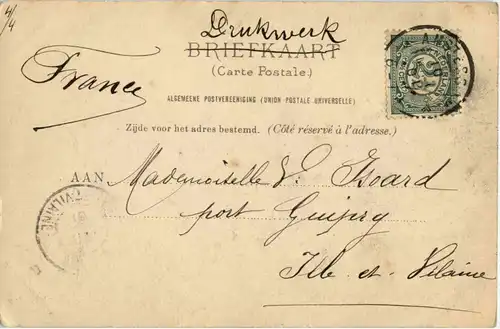 4/4
Drukwerk
BRIEFKAART
(Carte Postale.)
France
ALGEMEENE POSTVEREENIGING (UNION POSTALE UNIVERSELLE)
Zijde voor het adres bestemd. (Côté réservé à l'adresse.)
AAN Mademoiselle V. Isoard
port
Ille et Vilaine